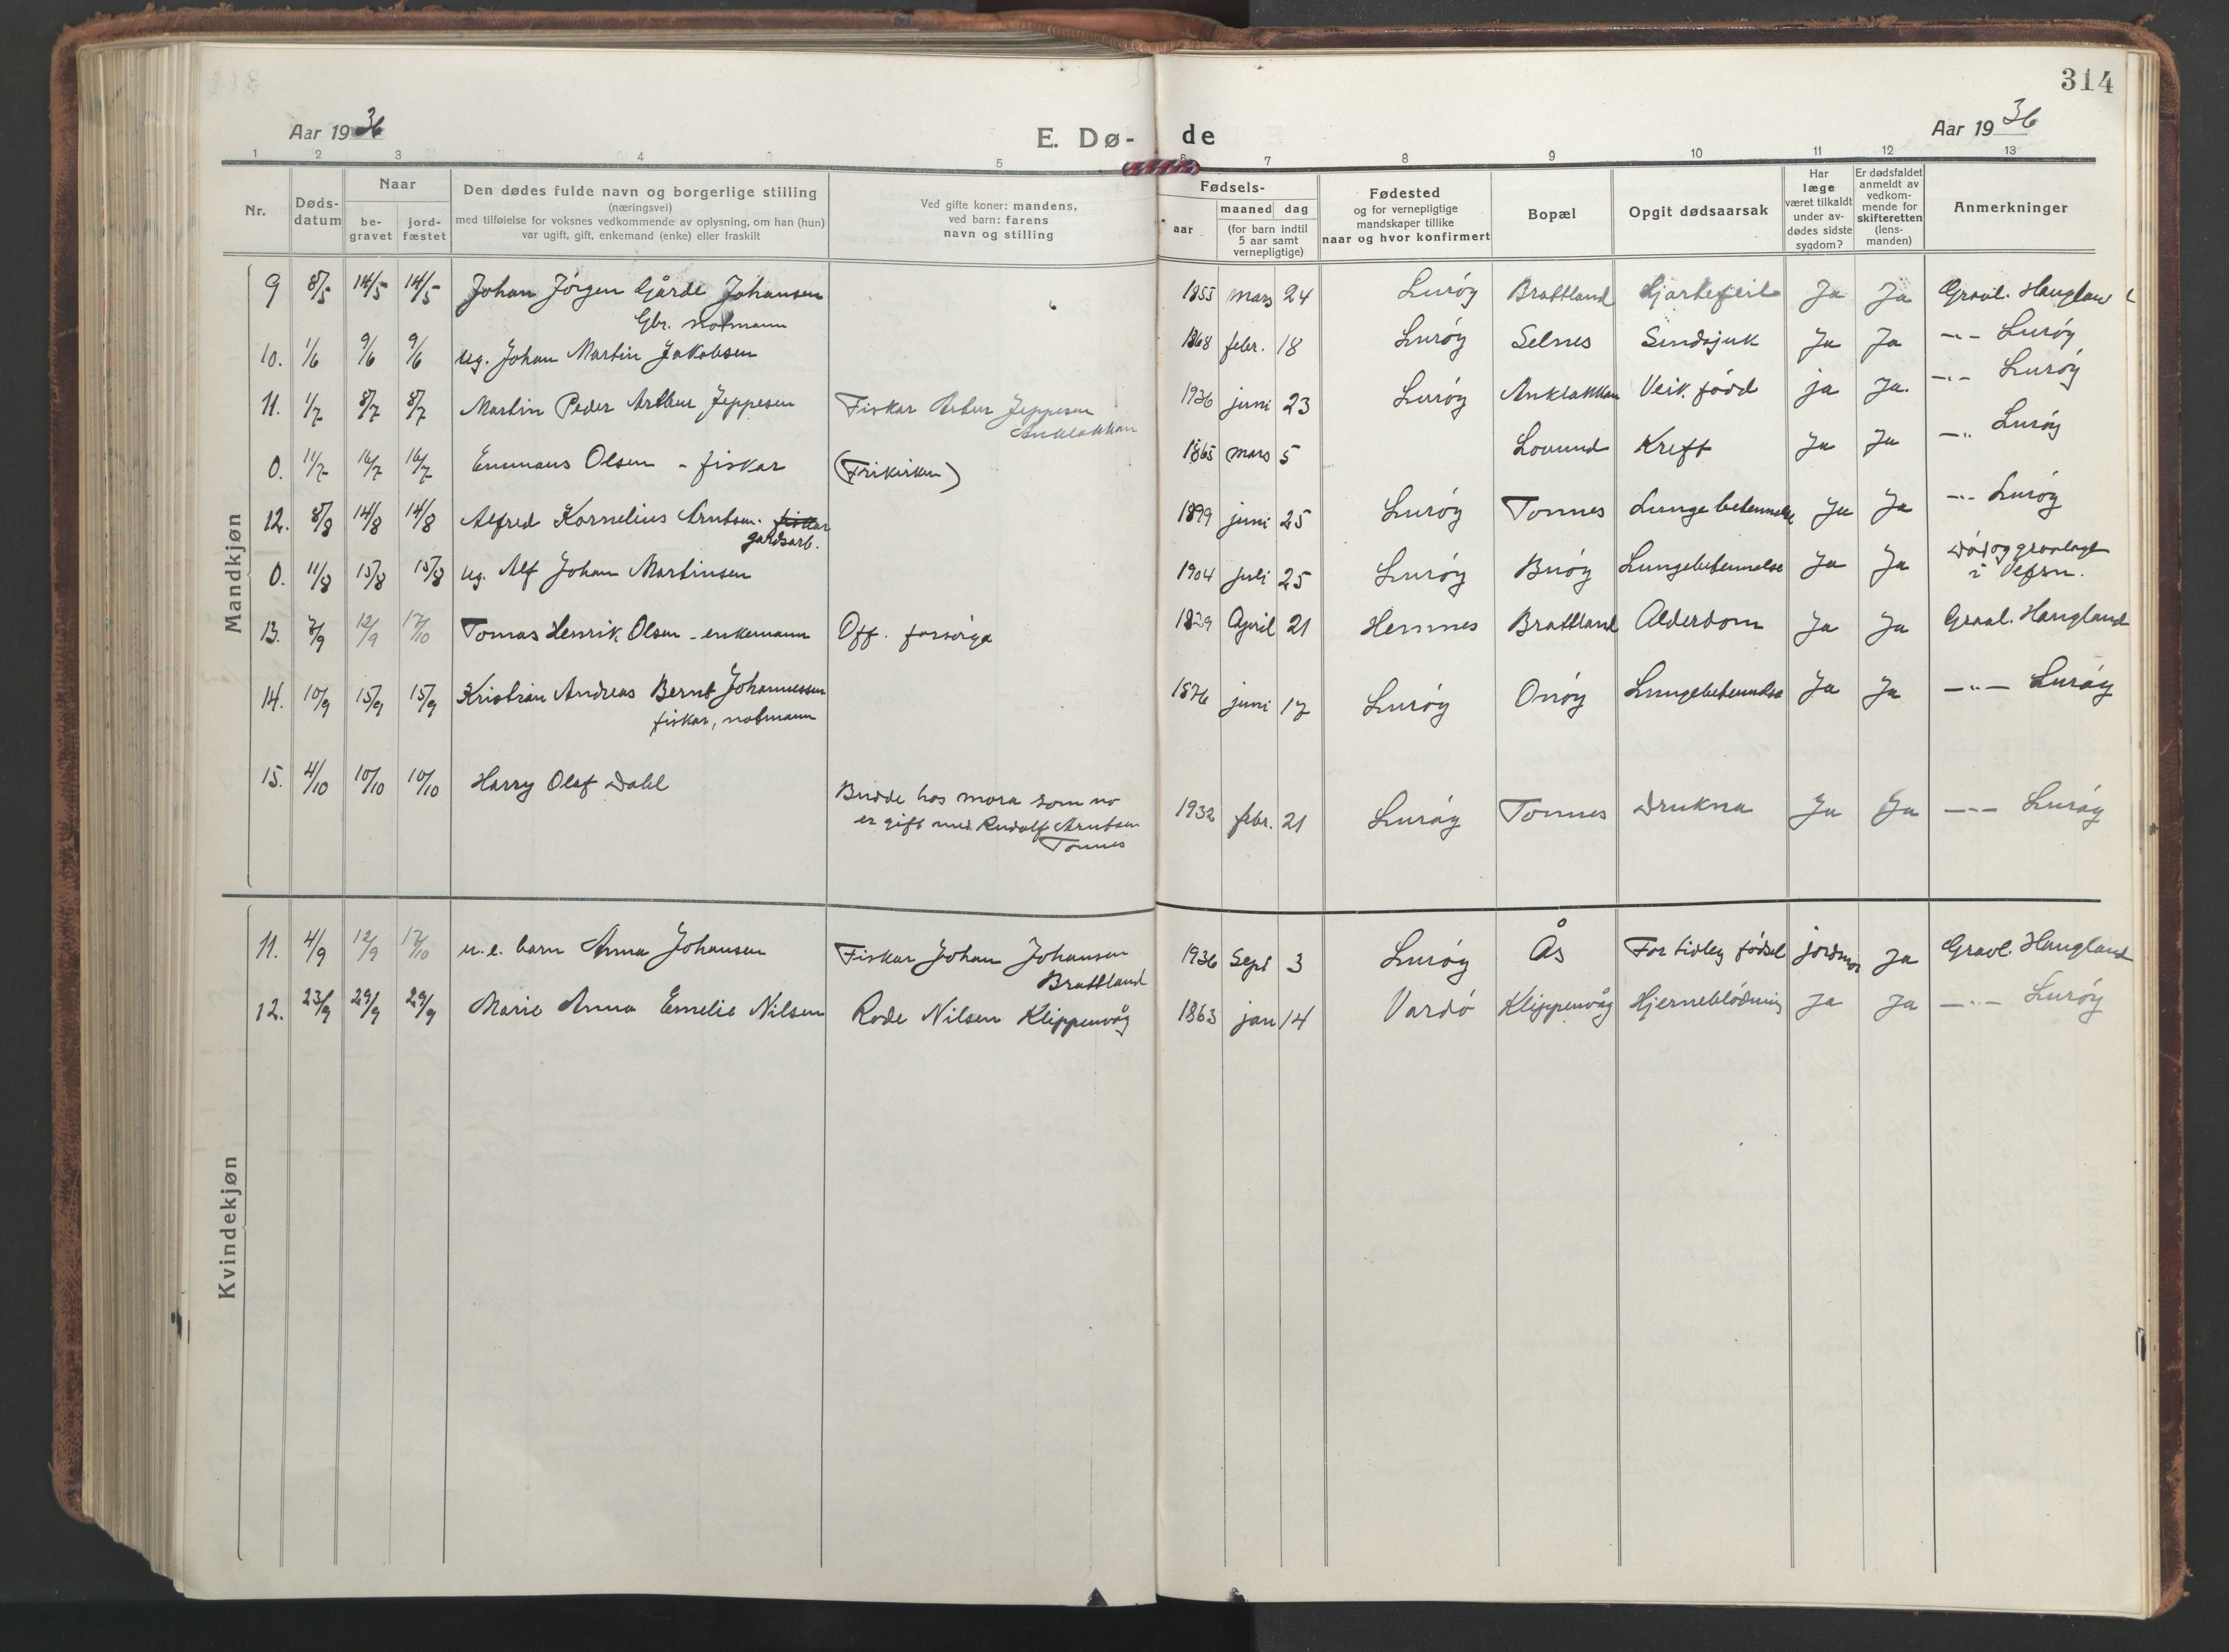 314
Aar 1936 E. Dø- de Aar 1936
1 2 3 4 5 6 7 8 9 10 11 12 13
Nr.
Døds-
datum
Naar
be-
gravet
jord-
fæstet
Den dødes fulde navn og borgerlige stilling
(næringsvei)
med tilføielse for voksnes vedkommende av oplysning, om han (hun)
var ugift, gift, enkemand (enke) eller fraskilt
Ved gifte koner: mandens,
ved barn: farens
navn og stilling
Fødsels-
aar
maaned dag
(for barn indtil
5 aar samt
vernepligtige)
Fødested
og for vernepligtige
mandskaper tillike
naar og hvor konfirmert
Bopæl
Opgit dødsaarsak
Har
læge
været tilkaldt
under av-
dødes sidste
sygdom?
Er dødsfaldet
anmeldt av
vedkom-
mende for
skifteretten
(lens-
manden)
Anmerkninger
Mandkjøn
9 8/5 14/5 14/5 Johan Jörgen Gårde Johansen 1855 mars 24 Luröy Brattland Hjartefeil Ja Ja Gravl. Haugland
Gbr. notmann
10. 1/6 9/6 9/6 ug. Johan Martin Jakobsen 1868 febr. 18 Luröy Selnes Sindsjuk Ja Ja -"- Luröy
11. 1/7 8/7 8/7 Martin Peder Arthur Jeppesen Fiskar Artur Jeppesen 1936 juni 23 Luröy Anklakkan Veik. född ja Ja. -"- Luröy
Anklakkan
0. 11/7 16/7 16/7 Emmaus Olsen - fiskar (Frikirken) 1865 mars 5 Lovund Kreft Ja Ja -"- Luröy
12. 8/8 14/8 14/8 Alfred Kornelius Arntsen. fiskar 1899 juni 25 Luröy Tonnes Lungebetennelse Ja Ja -"- Luröy
gardsarb.
0. 11/8 15/8 15/8 ug. Alf Johan Martinsen 1904 juli 25 Luröy Buöy Lungebetennelse Ja Ja Död og gravlagt
i Vefsn.
13. 7/9 12/9 17/10 Tomas Henrik Olsen - enkemann Off. forsörga 1829 April 21 Hemnes Brattland Alderdom Ja Ja Gravl. Haugland
14. 10/9 15/9 15/9 Kristian Andreas Bernt Johannessen 1876 juni 17 Luröy Onöy Lungebetennelse Ja Ja -"- Luröy
fiskar, notmann
15. 4/10 10/10 10/10 Harry Olaf Dahl Budde hos mora som no 1932 febr. 21 Luröy Tonnes Drukna Ja Ja -"- Luröy
er gift med Rudolf Arntsen
Tonnes
Kvindekjøn
11. 4/9 12/9 17/10 u.e. barn Anna Johansen Fiskar Johan Johansen 1936 Sept 3 Luröy Ås For tidleg födsel jordmor Ja Gravl. Haugland
Brattland
12. 23/9 29/9 29/9 Marie Anna Emelie Nilsen Rode Nilsen Klippenvåg 1863 jan 14 Vardö Klippenvåg Hjerneblödning Ja Ja -"- Luröy